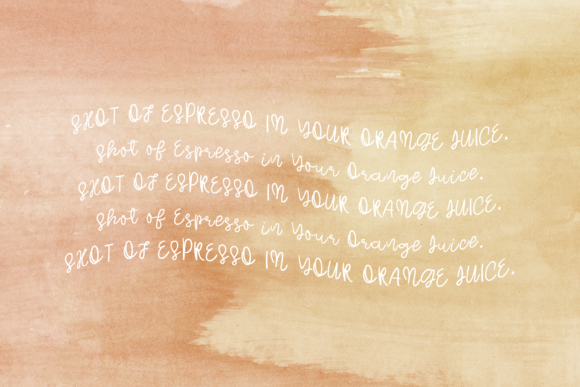 SHOT OF ESPRESSO IN YOUR ORANGE JUICE.
Shot of Espresso in Your Orange Juice.
SHOT OF ESPRESSO IN YOUR ORANGE JUICE.
Shot of Espresso in Your Orange Juice.
SHOT OF ESPRESSO IN YOUR ORANGE JUICE.